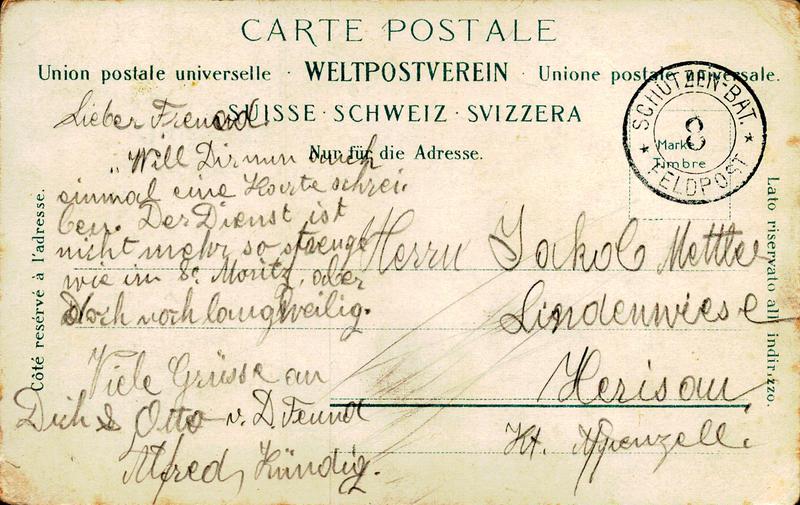 CARTE POSTALE
Union postale universelle · WELTPOSTVEREIN · Unione postale universale.
SUISSE · SCHWEIZ · SVIZZERA
Nur für die Adresse.
Côté reservé à l'adresse.
Lato riservato all indirizzo.
Marke
Timbre
SCHÜTZEN-BAT.
8
* FELDPOST *
Lieber Freund.
"Will Dir nun auch
einmal eine Karte schrei-
ben. Der Dienst ist
nicht mehr so strenge
wie im St. Moritz, aber
Doch noch langweilig.
Viele Grüsse an
Dich & Otto v. D. Feund
Alfred, Kündig.
Herrn Jakob Mettler
Lindenwiese
Herisau,
Kt. Appenzell.